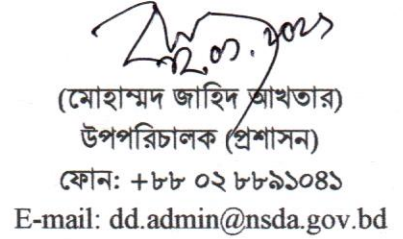 (মোহাম্মদ জাহিদ আখতার)
উপপরিচালক (প্রশাসন)
ফোন: +৮৮ ০২ ৮৮৯১০৪১
E-mail: dd.admin@nsda.gov.bd